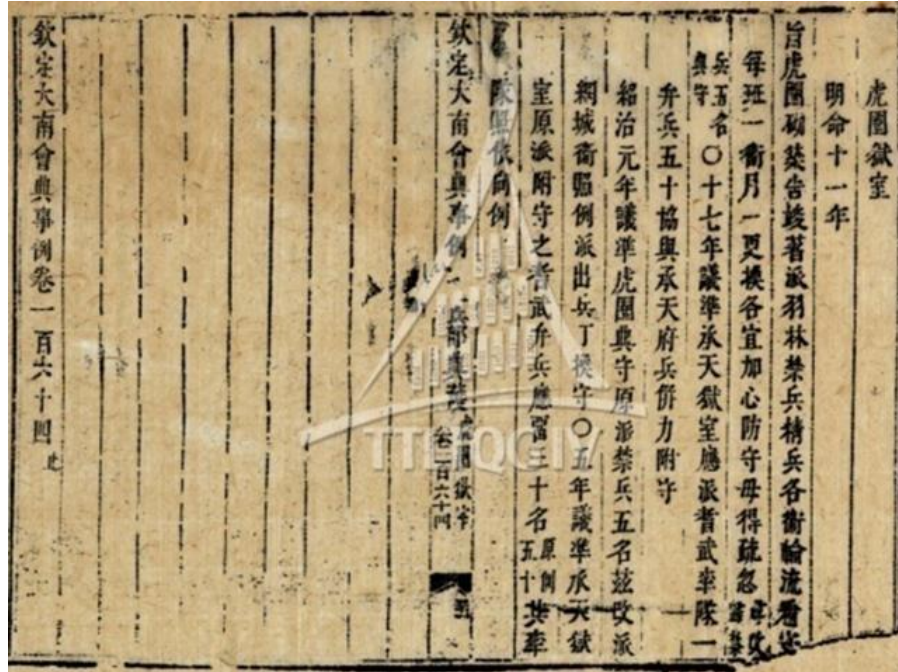 虎圈獄室
明命十一年
旨虎圈砌築告竣著派羽林禁兵精兵各衛輪流看守
每班一衛月一更換各宜加心防守毋得疏忽
兵五名
典守
〇十七年議準承天獄室應派耆武率隊一
弁兵五十協與承天府兵併力附守
紹治元年議準虎圈典守原派禁兵五名茲改派
網城衛照例派出兵丁換守〇五年議準承天獄
室原派附守之耆武弁兵應留三十名
原例
五十
其率
隊照依向例
欽定大南會典事例
兵部
虎圈獄室
卷一百六十四
欽定大南會典事例卷一百六十四
TTLTQGIV